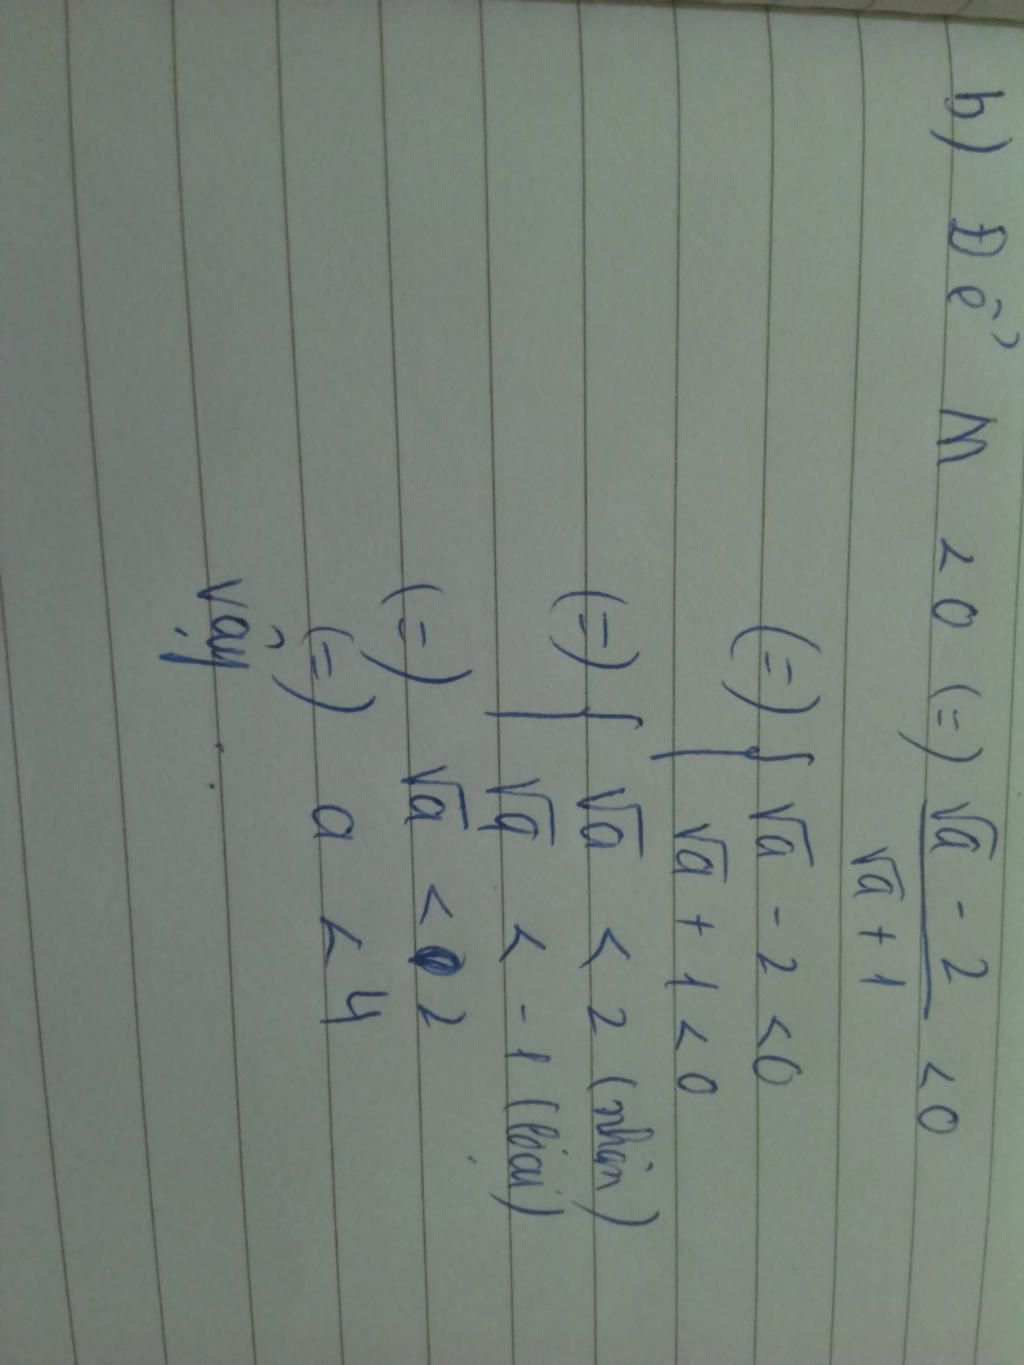 b) Để M < 0 (=) √a - 2 / √a + 1 < 0
(=) [ √a - 2 < 0
√a + 1 < 0
(=) [ √a < 2 (nhận)
√a < -1 (loại)
(=) √a < 2
(=) a < 4
Vậy